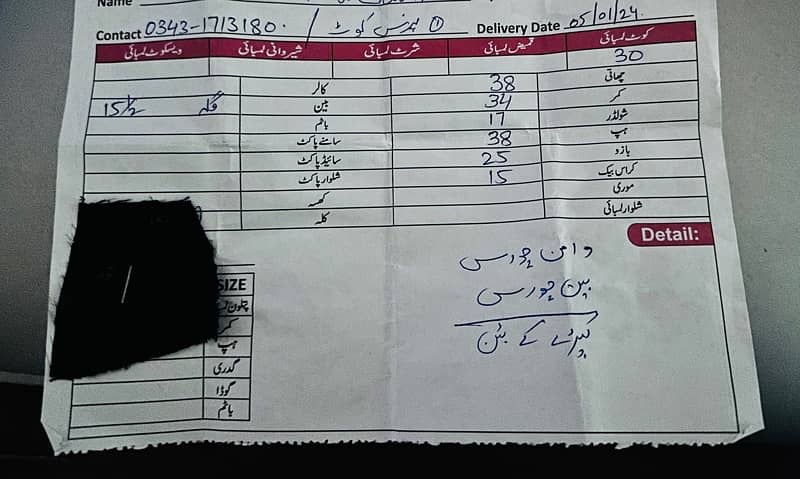 Name
Contact 0343-1713180 / ① پرنس کوٹ Delivery Date 05/01/24
کوٹ لمبائی قمیض لمبائی شرٹ لمبائی شیروانی لمبائی ویسکوٹ لمبائی
30
چھاتی 38 کالر
کمر 34 بین گلہ 15½
شولڈر 17 باٹم
ہپ 38 سامنے پاکٹ
بازو 25 سائیڈ پاکٹ
کراس بیک 15 شلوار پاکٹ
موری گھیرہ
شلوار لمبائی کلہ
Detail:
دامن چورس
بین چورس
کپڑے کے بٹن
SIZE
پتلون
کمر
ہپ
گدری
گوڈا
باٹم